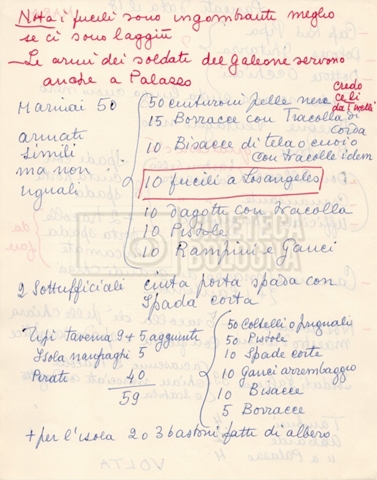 NB a i fucili sono ingombranti meglio
se ci sono laggiù
– Le armi dei soldati del galeone servono
anche a Palazzo
Marinai 50
armati
simili
ma non
uguali
50 cinturoni pelle nera
credo
ce li
da
15 Borracce con Tracolla di
corda
10 Bisacce di tela o cuoio
con tracolle idem
10 fucili a Losangeles
10 dagotte con tracolla
10 Pistole
10 Rampini e Ganci
CINETECA
BOLOGNA
2 Sottufficiali cinta porta spada con
Spada corta
Tipi taverna 9 + 5 aggiunti
Isola naufraghi 5
Pirati 40
59
50 Coltelli o pugnali
50 Pistole
10 Spade corte
10 Ganci arrembaggio
10 Bisacce
5 Borracce
+ per l'isola 2 o 3 bastoni fatti di albero
VOLTA